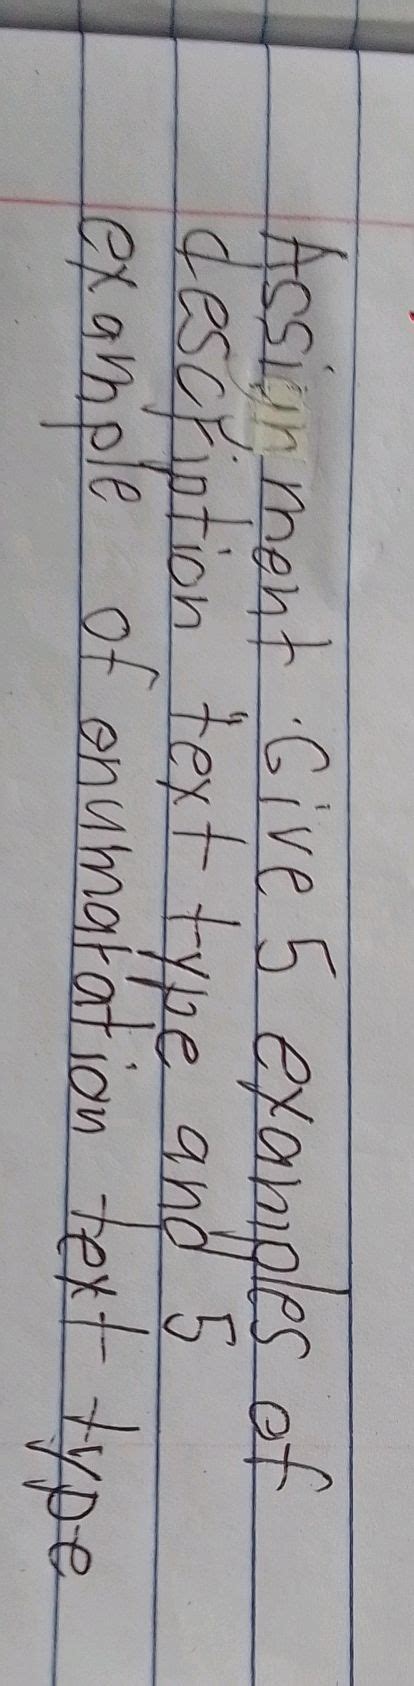 Assignment. Give 5 examples of
description text type and 5
example of enumaration text type